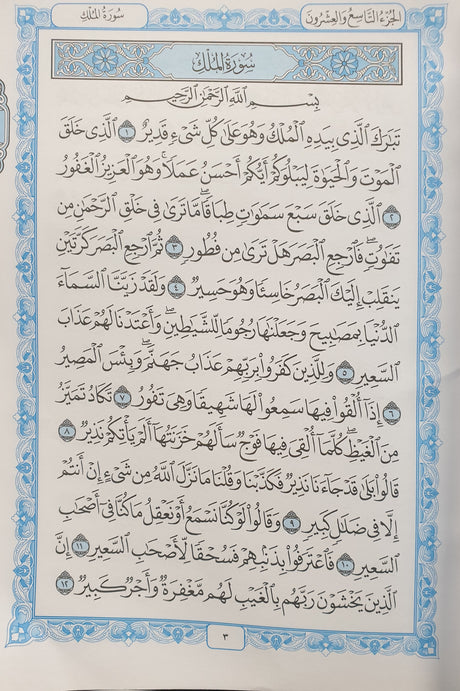 سُورَةُ المُلْكِ
الجُزْءُ التَّاسِعُ وَالعِشْرُونَ
سُورَةُ المُلْكِ
بِسْمِ اللَّهِ الرَّحْمَٰنِ الرَّحِيمِ
تَبَارَكَ ٱلَّذِي بِيَدِهِ ٱلْمُلْكُ وَهُوَ عَلَىٰ كُلِّ شَيْءٍ قَدِيرٌ ١ ٱلَّذِي خَلَقَ
ٱلْمَوْتَ وَٱلْحَيَوٰةَ لِيَبْلُوَكُمْ أَيُّكُمْ أَحْسَنُ عَمَلًا ۚ وَهُوَ ٱلْعَزِيزُ ٱلْغَفُورُ
٢ ٱلَّذِي خَلَقَ سَبْعَ سَمَٰوَٰتٍ طِبَاقًا ۖ مَّا تَرَىٰ فِي خَلْقِ ٱلرَّحْمَٰنِ مِن
تَفَٰوُتٍ ۖ فَٱرْجِعِ ٱلْبَصَرَ هَلْ تَرَىٰ مِن فُطُورٍ ٣ ثُمَّ ٱرْجِعِ ٱلْبَصَرَ كَرَّتَيْنِ
يَنقَلِبْ إِلَيْكَ ٱلْبَصَرُ خَاسِئًا وَهُوَ حَسِيرٌ ٤ وَلَقَدْ زَيَّنَّا ٱلسَّمَآءَ
ٱلدُّنْيَا بِمَصَٰبِيحَ وَجَعَلْنَٰهَا رُجُومًا لِّلشَّيَٰطِينِ ۖ وَأَعْتَدْنَا لَهُمْ عَذَابَ
ٱلسَّعِيرِ ٥ وَلِلَّذِينَ كَفَرُوا۟ بِرَبِّهِمْ عَذَابُ جَهَنَّمَ ۖ وَبِئْسَ ٱلْمَصِيرُ
٦ إِذَآ أُلْقُوا۟ فِيهَا سَمِعُوا۟ لَهَا شَهِيقًا وَهِيَ تَفُورُ ٧ تَكَادُ تَمَيَّزُ
مِنَ ٱلْغَيْظِ ۖ كُلَّمَآ أُلْقِيَ فِيهَا فَوْجٌ سَأَلَهُمْ خَزَنَتُهَآ أَلَمْ يَأْتِكُمْ نَذِيرٌ ٨
قَالُوا۟ بَلَىٰ قَدْ جَآءَنَا نَذِيرٌ فَكَذَّبْنَا وَقُلْنَا مَا نَزَّلَ ٱللَّهُ مِن شَيْءٍ إِنْ أَنتُمْ
إِلَّا فِي ضَلَٰلٍ كَبِيرٍ ٩ وَقَالُوا۟ لَوْ كُنَّا نَسْمَعُ أَوْ نَعْقِلُ مَا كُنَّا فِيٓ أَصْحَٰبِ
ٱلسَّعِيرِ ١٠ فَٱعْتَرَفُوا۟ بِذَنۢبِهِمْ فَسُحْقًا لِّأَصْحَٰبِ ٱلسَّعِيرِ ١١ إِنَّ
ٱلَّذِينَ يَخْشَوْنَ رَبَّهُم بِٱلْغَيْبِ لَهُم مَّغْفِرَةٌ وَأَجْرٌ كَبِيرٌ ١٢
٣